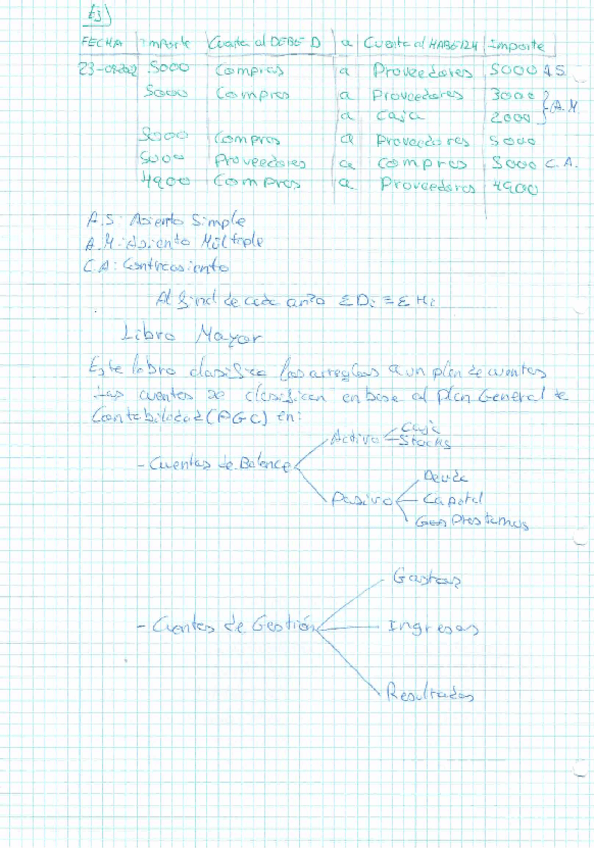 Ej)
FECHA Importe Cuenta al DEBE D a Cuenta al HABER H importe
5000 Compras a Proveedores 5000 A.S.
5000 Compras a Proveedores 3000
a Caja 2000 A.M.
5000 Compras a Proveedores 5000
5000 Proveedores a Compras 5000 C.A.
4900 Compras a Proveedores 4900
A.S: Asiento Simple
A.M: Asiento Múltiple
C.A: Contrasiento
Al final de cada ΣDi = ΣHi
Libro Mayor
Este libro clasifica a un plan de cuentas
Las cuentas se clasifican en base al Plan General de
Contabilidad (PGC) en:
- Cuentas de Balance
Activo
Caja
Stocks
Pasivo
Deuda
Capital
Préstamos
- Cuentas de Gestión
Gastos
Ingresos
Resultados